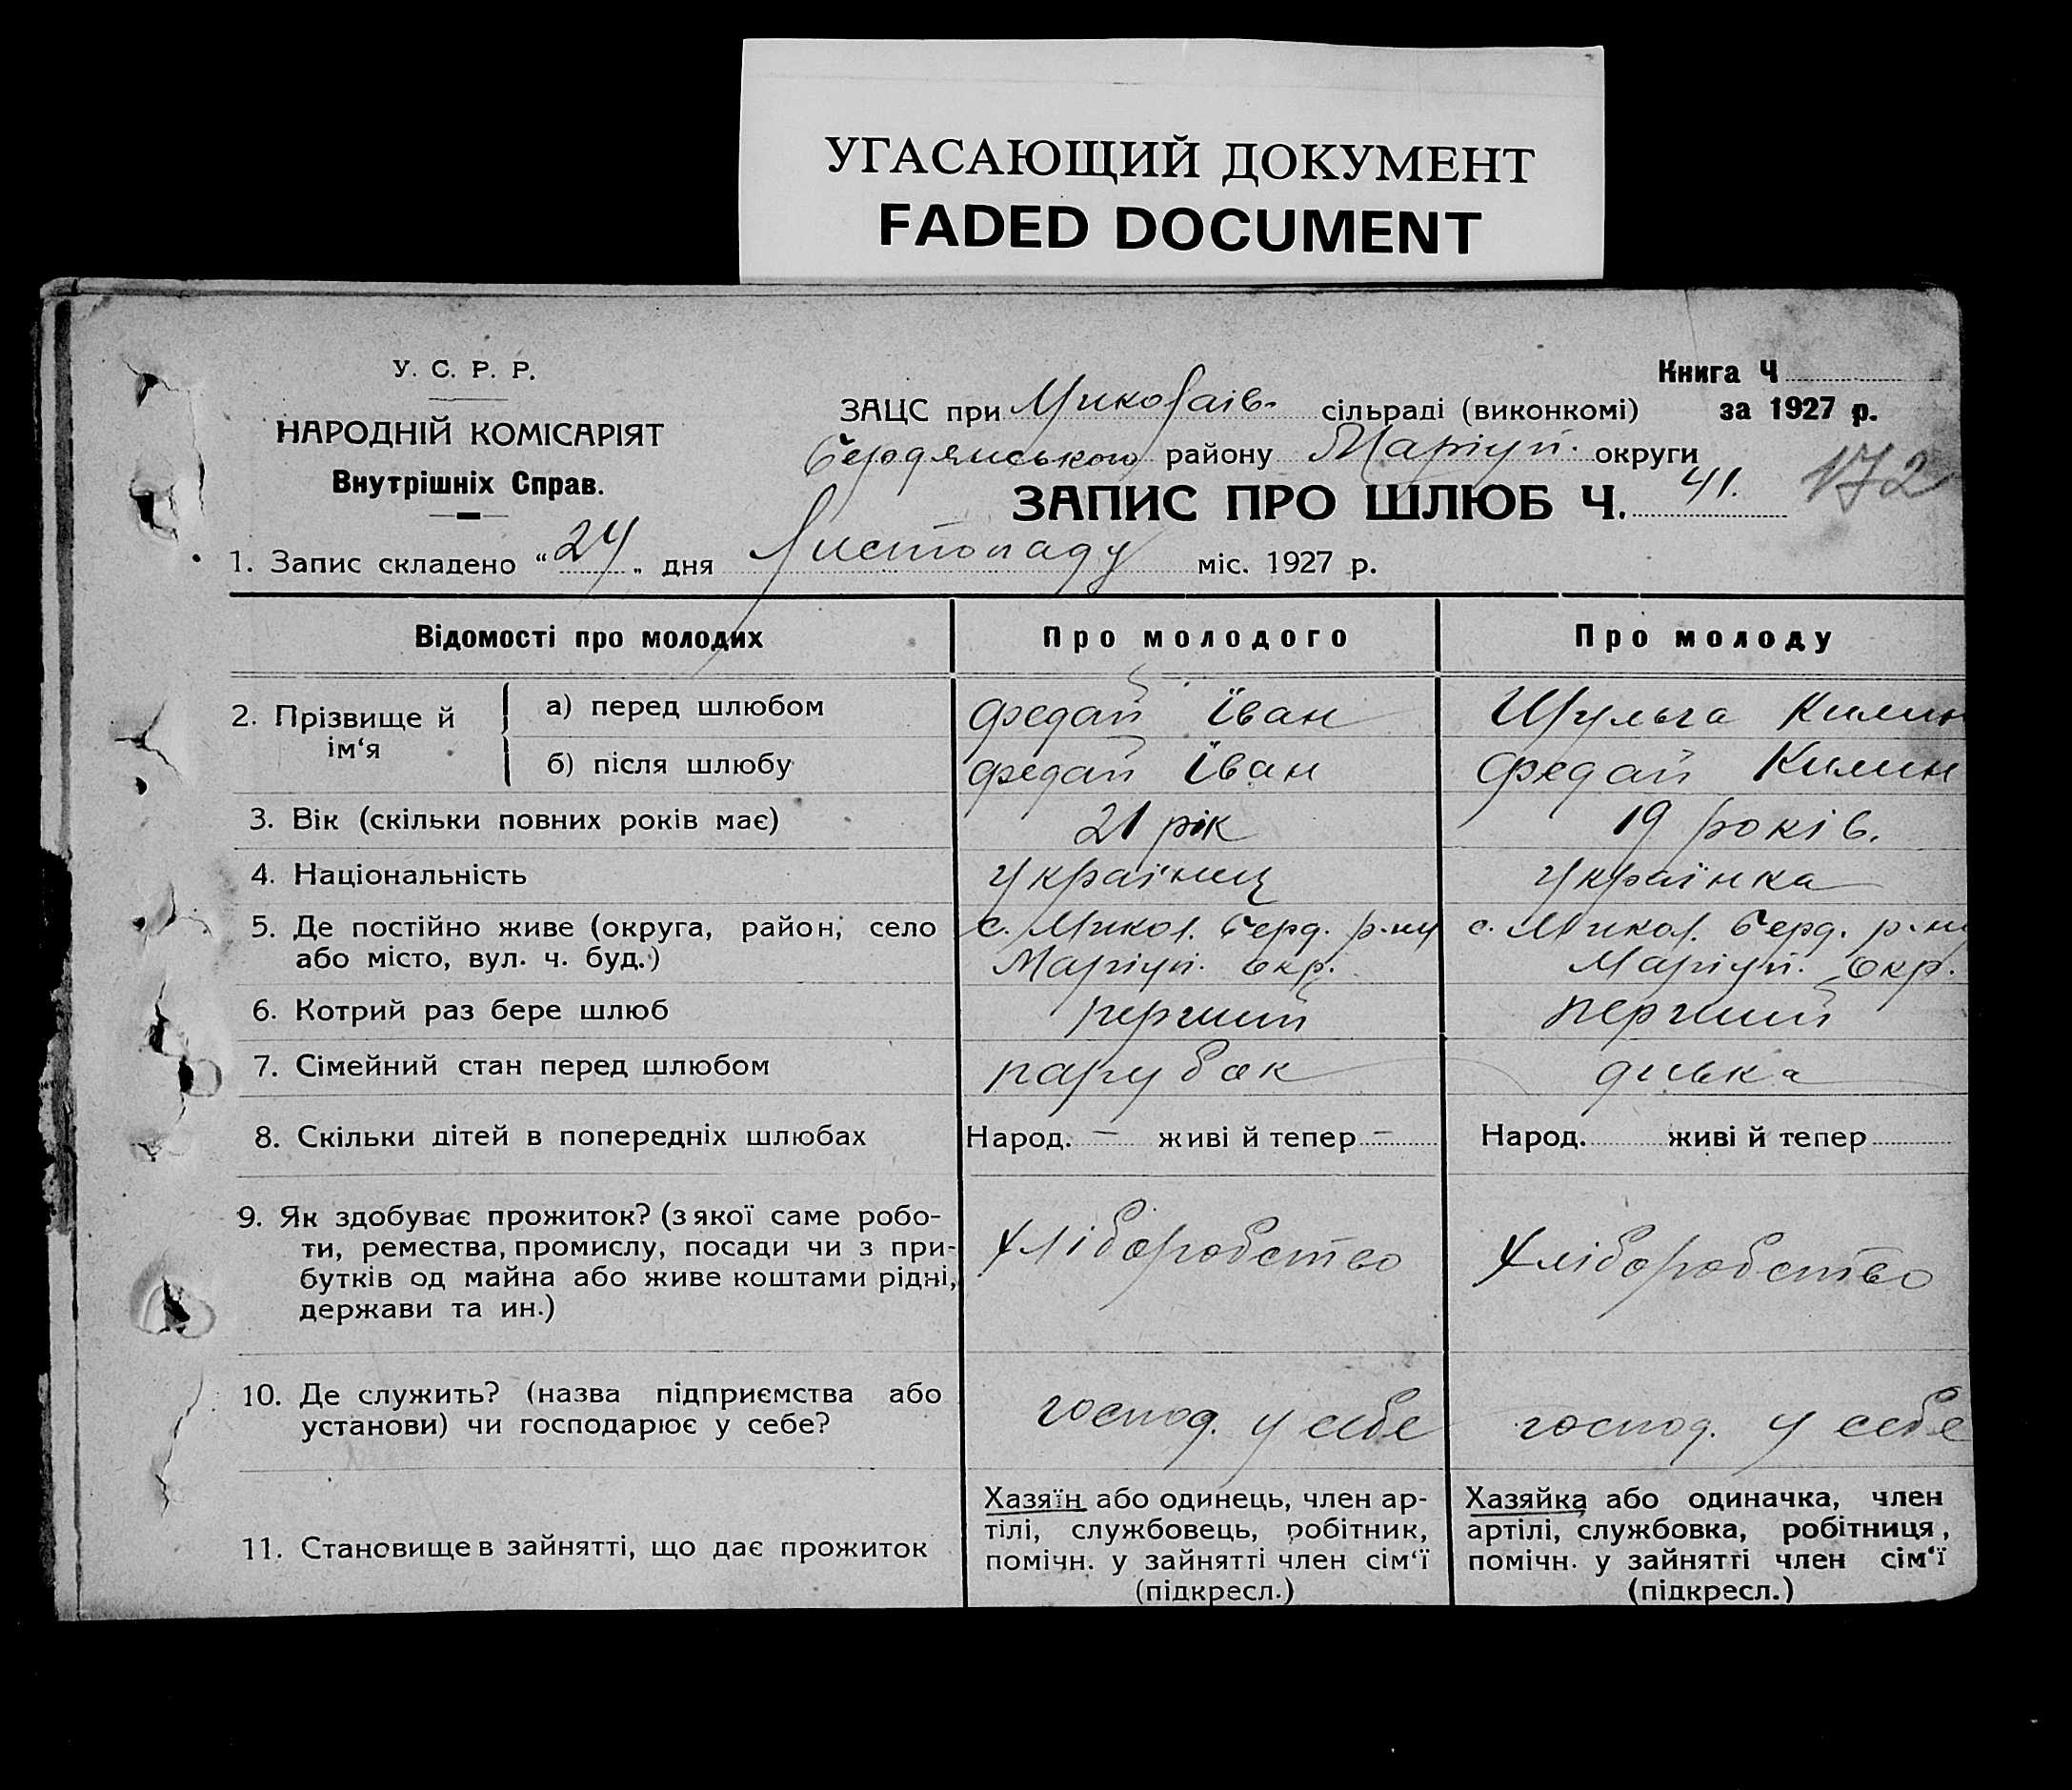 УГАСАЮЩИЙ ДОКУМЕНТ
FADED DOCUMENT
У. С. Р. Р.
НАРОДНІЙ КОМІСАРІЯТ
Внутрішніх Справ.
Книга Ч
за 1927 р.
ЗАЦС при Миколаїв. сільраді (виконкомі)
Бердянського району Маріуп. округи
ЗАПИС ПРО ШЛЮБ Ч. 41.
172
1. Запис складено “ 24 „ дня Листопаду міс. 1927 р.
Відомості про молодих Про молодого Про молоду
2. Прізвище й ім‘я
а) перед шлюбом Федай Іван Шульга Килин
б) після шлюбу Федай Іван Федай Килин
3. Вік (скільки повних років має) 21 рік 19 років.
4. Національність україниц українка
5. Де постійно живе (округа, район, село с. Микол. Берд. р-ну с. Микол. Берд. р-ну
або місто, вул. ч. буд.) Маріуп. окр. Маріуп. окр.
6. Котрий раз бере шлюб перший перший
7. Сімейний стан перед шлюбом парубок дівка
8. Скільки дітей в попередніх шлюбах Народ. — живі й тепер — Народ. живі й тепер
9. Як здобуває прожиток? (з якої саме робо-
ти, ремества, промислу, посади чи з при- хліборобство хліборобство
бутків од майна або живе коштами рідні,
держави та ин.)
10. Де служить? (назва підприємства або господ. у себе господ. у себе
установи) чи господарює у себе?
11. Становище в зайнятті, що дає прожиток
Хазяїн або одинець, член ар-
тілі, службовець, робітник,
помічн. у зайнятті член сім‘ї
(підкресл.)
Хазяйка або одиначка, член
артілі, службовка, робітниця,
помічн. у зайнятті член сім‘ї
(підкресл.)